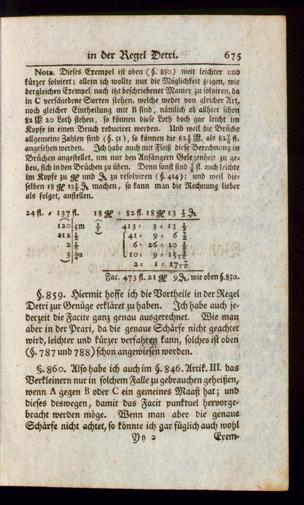 in der Regel Detri. 675
Nota. Dieses Exempel ist oben (§. 850) weit leichter und
kürzer solviret; allein ich wollte nur die Möglichkeit zeigen, wie
dergleichen Exempel nach itzt beschriebener Manier zu solviren, da
in C verschiedene Sorten stehen, welche weder von gleicher Art,
noch gleicher Eintheilung mit B sind, nämlich ob allhier schon
82 ℔ 20 Loth stehen, so können diese Loth doch gar leicht im
Kopfe in einen Bruch reduciret werden. Und weil die Brüche
allgemeine Zahlen sind (§. 51), so können die 82⅝ ℔, als 82⅝ fl.
angesehen werden. Ich habe auch mit Fleiß diese Berechnung in
Brüchen angestellet, um nur den Anfängern Gelegenheit zu ge-
ben, sich in den Brüchen zu üben. Denn sonst sind ⅝ fl. auch leichte
im Kopfe zu gr und ₰ zu resolviren (§. 414); und weil die-
selben 18 gr 13½ ₰ machen, so kann man die Rechnung lieber
als folget, anstellen.
24 fl. = 137 fl. 18 gr = 82 fl. 18 gr 13 ½ ₰
413 = 3 = 13
6 = 26 = 10
Fac. 473 fl. 21 gr 9 ₰, wie oben §. 850.
§. 859. Hiermit hoffe ich die Vortheile in der Regel
Detri zur Genüge erkläret zu haben. Ich habe auch je-
derzeit die Facite ganz genau ausgerechnet. Wie man
aber in der Praxi, da die genaue Schärfe nicht geachtet
wird, leichter und kürzer verfahren kann, solches ist oben
(§. 787 und 788) schon angewiesen worden.
§. 860. Also habe ich auch im §. 846. Artik. III. das
Verkleinern nur in solchem Falle zu gebrauchen geheißen,
wenn A gegen B oder C ein gemeines Maaß hat; und
dieses deswegen, damit das Facit punktuel hervorge-
bracht werden möge. Wenn man aber die genaue
Schärfe nicht achtet, so könnte ich gar füglich auch wohl
Yy 2 Exem-